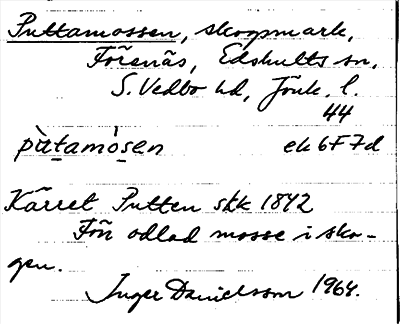 Puttamossen, skogsmark,
Förenäs, Edshults sn,
S. Vedbo hd, Jönk. l.
44
pùtamòsen ek 6F7d
Kärret Putten skk 1842
Förr odlad mosse i sko-
gen.
Inger Danielsson 1964.